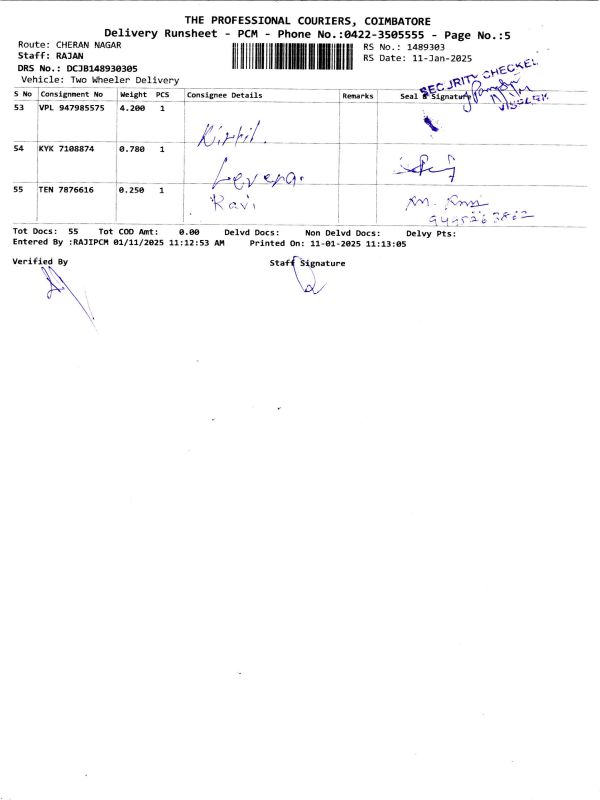 THE PROFESSIONAL COURIERS, COIMBATORE
Delivery Runsheet - PCM - Phone No.:0422-3505555 - Page No.:5
Route: CHERAN NAGAR
RS No.: 1489303
Staff: RAJAN
RS Date: 11-Jan-2025
DRS No.: DCJB148930305
Vehicle: Two Wheeler Delivery
SECURITY CHECKED
S No Consignment No Weight PCS Consignee Details Remarks Seal & Signature
53 VPL 947985575 4.200 1
54 KYK 7108874 0.780 1
55 TEN 7876616 0.250 1 Ravi
Tot Docs: 55 Tot COD Amt: 0.00 Delvd Docs: Non Delvd Docs: Delvy Pts:
Entered By :RAJIPCM 01/11/2025 11:12:53 AM Printed On: 11-01-2025 11:13:05
Verified By Staff Signature